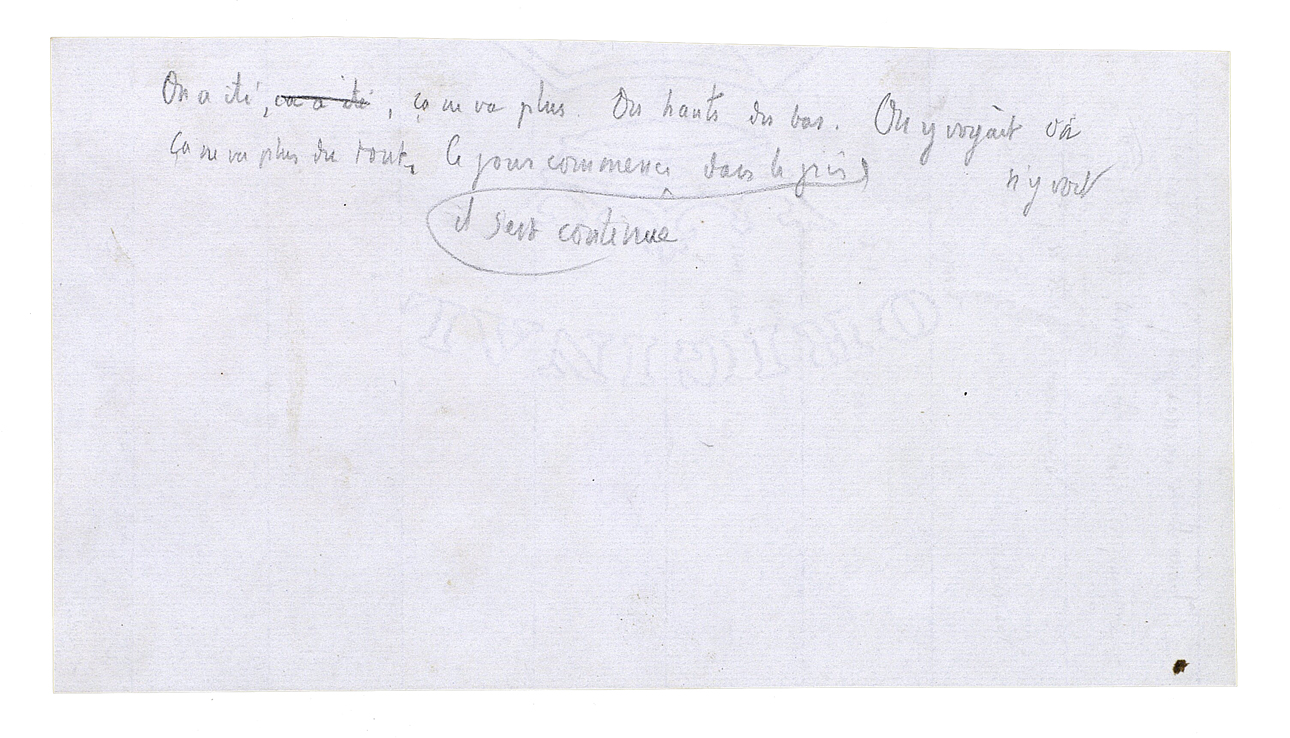 On a été, ça a été, ça ne va plus. Des hauts des bas. On y voyait on
ça ne va plus du tout, le jour commence dans le gris
n'y voit
il s'est continue